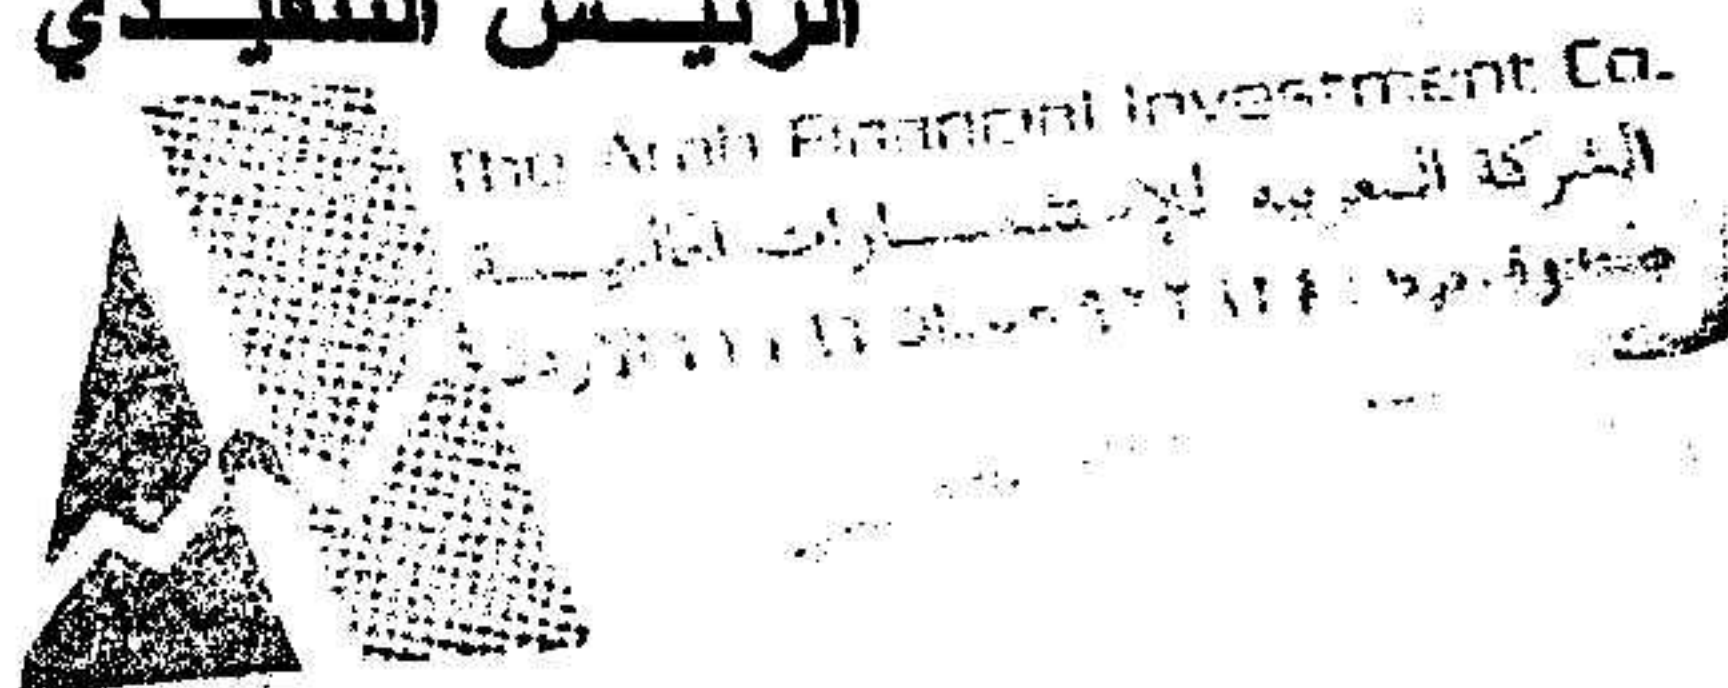 الرئيس التنفيذي
The Arab Financial Investment Co.
الشركة العربية للإستثمارات المالية
صندوق بريد : عمان الاردن